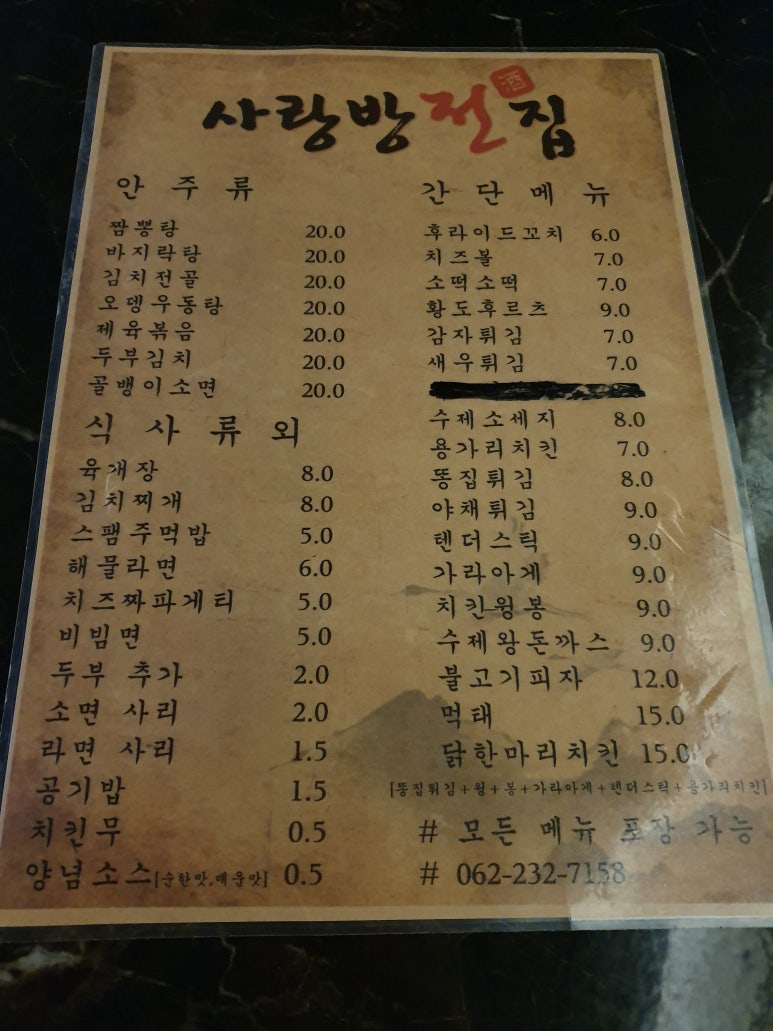 사랑방전집
酒
안주류
짬뽕탕 20.0
바지락탕 20.0
김치전골 20.0
오뎅우동탕 20.0
제육볶음 20.0
두부김치 20.0
골뱅이소면 20.0
식사류외
육개장 8.0
김치찌개 8.0
스팸주먹밥 5.0
해물라면 6.0
치즈짜파게티 5.0
비빔면 5.0
두부 추가 2.0
소면 사리 2.0
라면 사리 1.5
공기밥 1.5
치킨무 0.5
양념소스[순한맛,매운맛] 0.5
간단메뉴
후라이드꼬치 6.0
치즈볼 7.0
소떡소떡 7.0
황도후르츠 9.0
감자튀김 7.0
새우튀김 7.0
수제소세지 8.0
용가리치킨 7.0
똥집튀김 8.0
야채튀김 9.0
텐더스틱 9.0
가라아게 9.0
치킨윙봉 9.0
수제왕돈까스 9.0
불고기피자 12.0
먹태 15.0
닭한마리치킨 15.0
[똥집튀김+윙+봉+가라아게+텐더스틱+용가리치킨]
# 모든 메뉴 포장 가능
# 062-232-7158